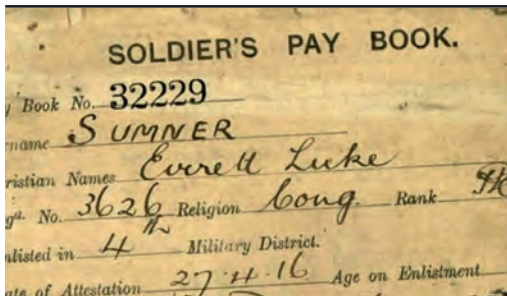 SOLDIER'S PAY BOOK.
y Book No. 32229
rname SUMNER
ristian Names Everett Luke
gtl. No. 3626 Religion Cong. Rank
nlisted in 4th Military District.
ate of Attestation 27.4.16 Age on Enlistment